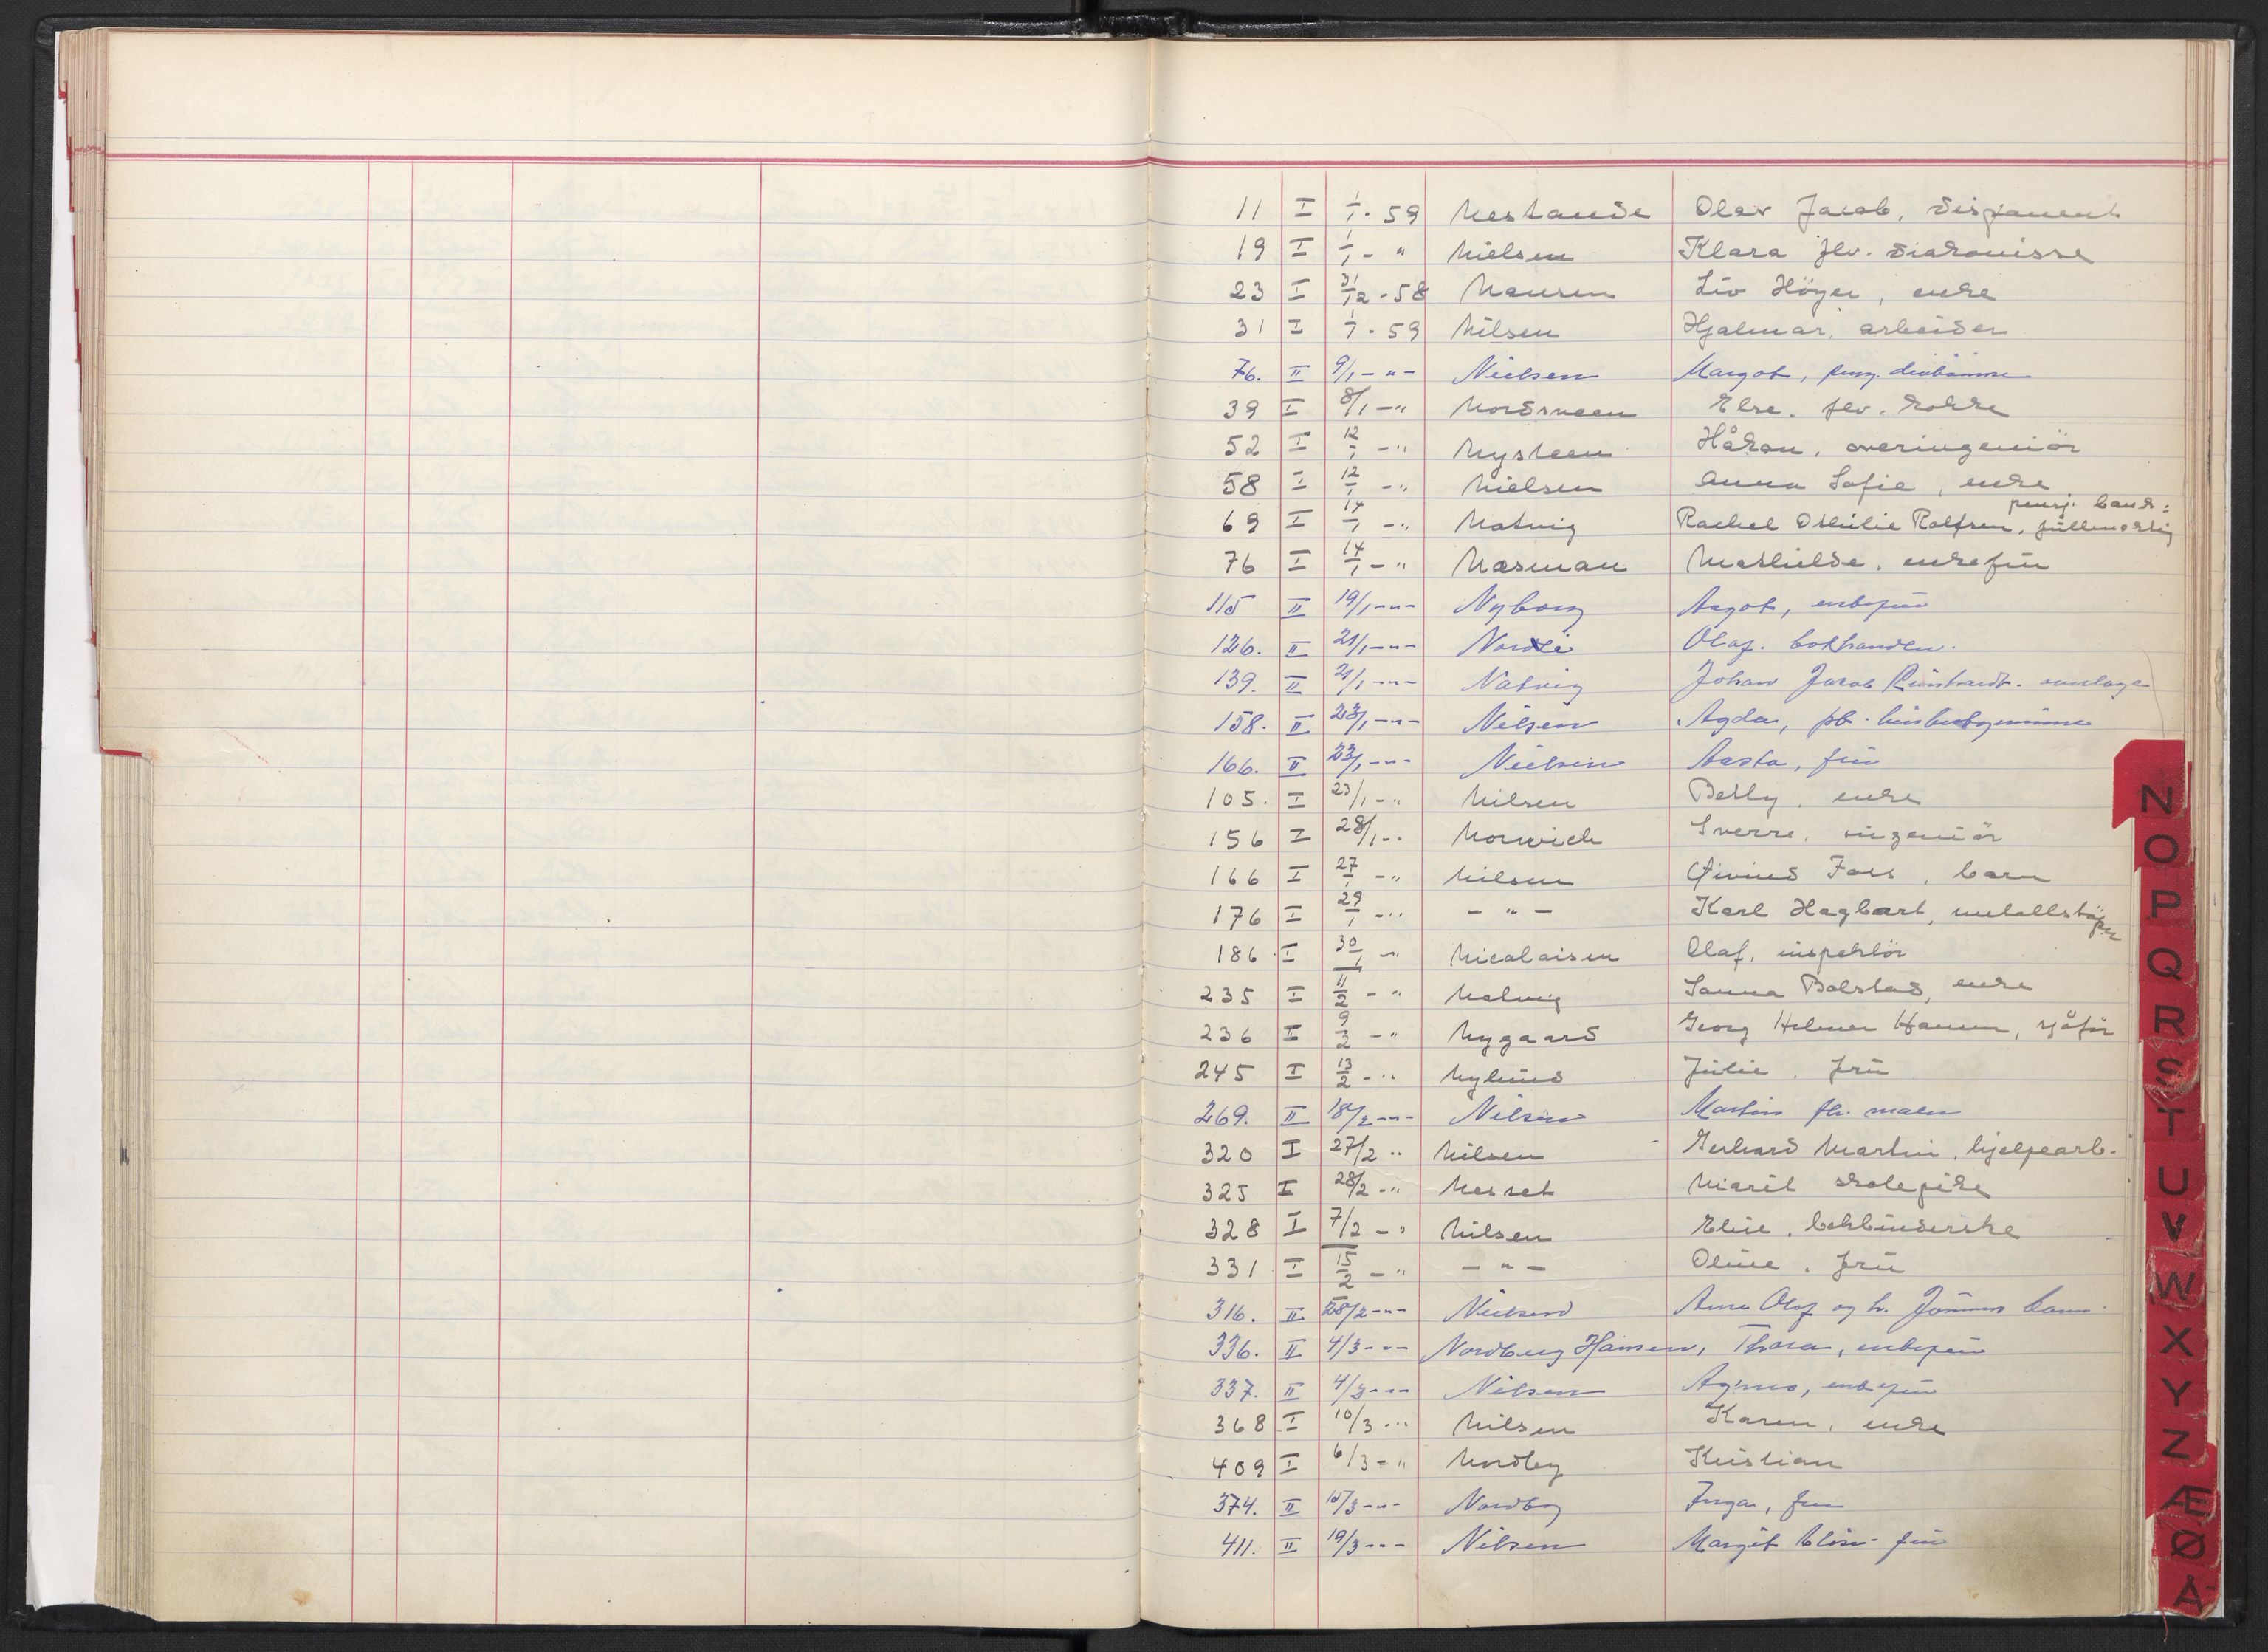 11 I 1/1 - 59 Nestande Olav Jacob, disponent
19 I 1/1 - " Nielsen Klara frk. diakonisse
23 I 31/12 - 58 Nansen Liv Höyer, enke
31 I 1/1 - 59 Nilsen Hjalmar, arbeider
76. II 9/1 - " - Nielsen Margot, pensj.
39 I 8/1 - " Nordsveen Else. frk. kokke
52 I 12/1 - " Nysteen Håkon, overingeniör
58 I 12/1 - " Nielsen Anna Sofie, enke
69 I 14/1 - " Natvig Rachel Othilie Rolfsen, pensj. bank= fullmektig
76 I 14/1 - " Næsman Mathilde. enkefru
115 II 19/1 - " - Nyborg Aagot, enkefru
126. II 21/1 - " - Nordli Olaf. bokhandler.
139. II 21/1 - " - Natvig Johan Jacob Reinhardt. overlæge
158. II 23/1 - " - Nilsen Agda, pb.
166. II 23/1 - " - Nielsen Aasta, fru
105. I 23/1 - " Nilsen Betty, enke
156 I 28/1 - " Norwich Sverre, ingeniör
166 I 27/1 - " Nilsen Øivind Foss, barn
176 I 29/1 - " - " - Karl Hagbart, metallstöper
186 I 30/1 - " Nicolaisen Olaf, inspektör
235 I 11/2 - " Natvig Sanna Bolstad, enke
236 I 9/2 - " Nygaard Georg Helmer Hansen, sjåför
245 I 13/2 - " Nylund Julie, fru
269. II 18/2 - " - Nilsen Martin fh. maler
320 I 27/2 " Nilsen Gerhard Martin, hjelpearb.
325 I 28/2 - " Nesset Marit skolepike
328 I 7/2 - " Nilsen Elise, bokbinderske
331 I 15/2 - " - " - Oline, fru
316. II 28/2 - " - Nielsen Arne Olaf og h. Jorunns barn.
336. II 4/3 - " - Nordberg Hansen, Thora, enkefru
337. II 4/3 - " - Nilsen Agnes, enkefru
368 I 10/3 - " Nilsen Karen, enke
409 I 6/3 - " Nordby Kristian
374. II 15/3 - " - Nordby Inga, fru
411. II 19/3 - " - Nilsen Margit fru
N
O
P
Q
R
S
T
U
V
W
X
Y
Z
Æ
Ø
Å